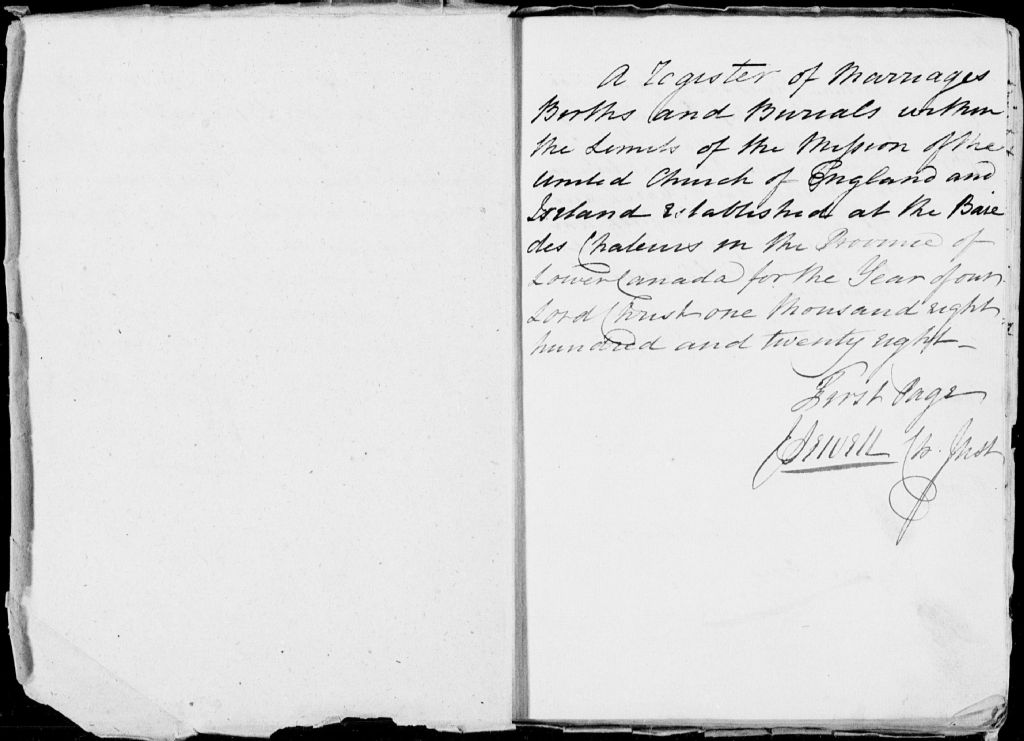 A Register of Marriages
Births and Burials within
the Limits of the Mission of the
United Church of England and
Ireland Established at the Baie
des Chaleurs in the Province of
Lower Canada for the Year of our
Lord Christ one thousand eight
hundred and twenty eight
First Page
J Sewell Ch. Just